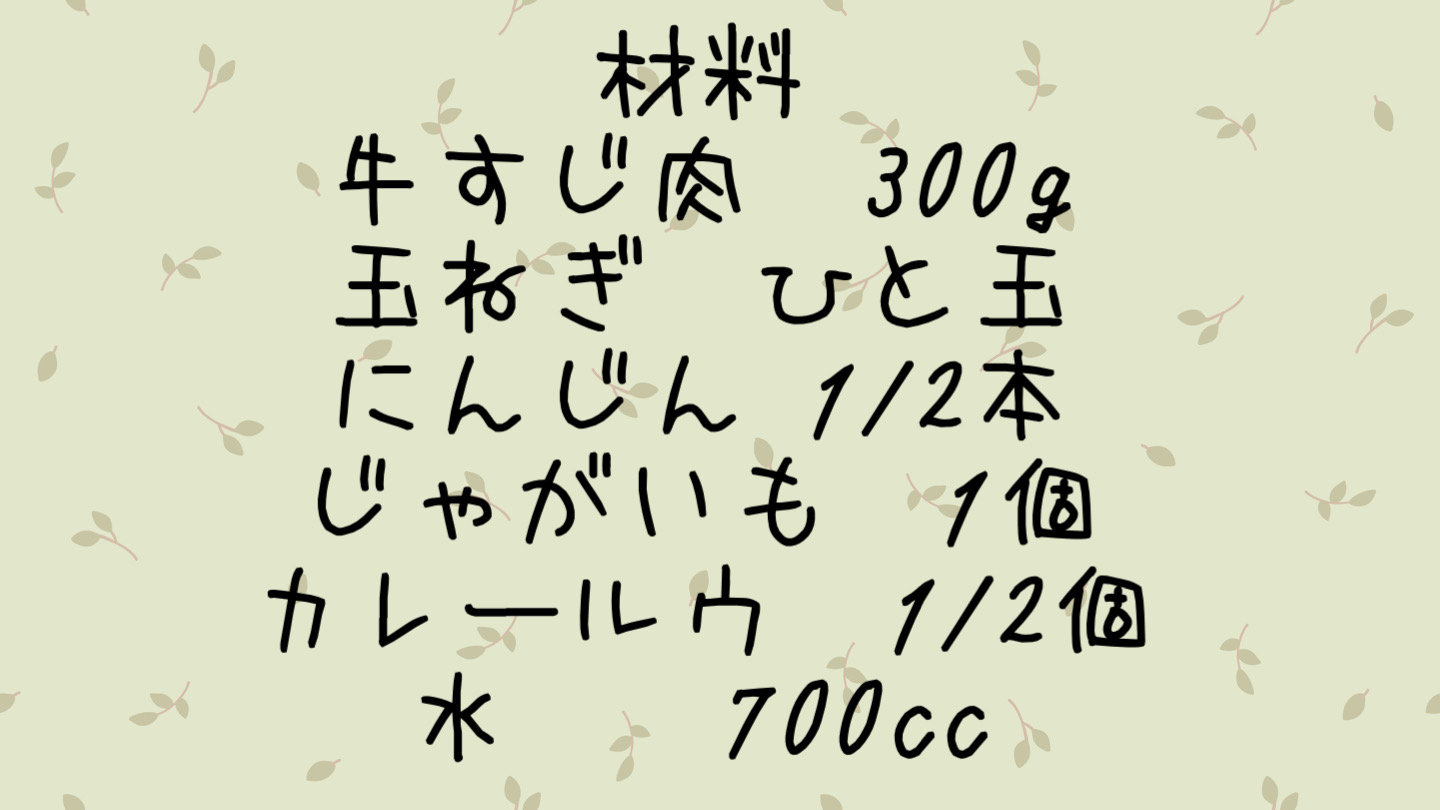 材料
牛すじ肉　300g
玉ねぎ　ひと玉
にんじん 1/2本
じゃがいも　1個
カレールウ　1/2個
水　700cc